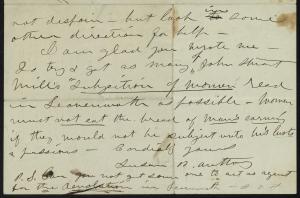 not despair - but look in some
other direction for help -
I am glad you wrote me -
Do try & get as many John Stuart
Mill's "Subjection of Women read
in Leavenworth as possible - Women
must not eat the bread of man's earning
if they would not be subject unto his lusts
& passions - Cordially yours
Susan B. Anthony
P.S. Can you not get some one to act as agent
for the Revolution in